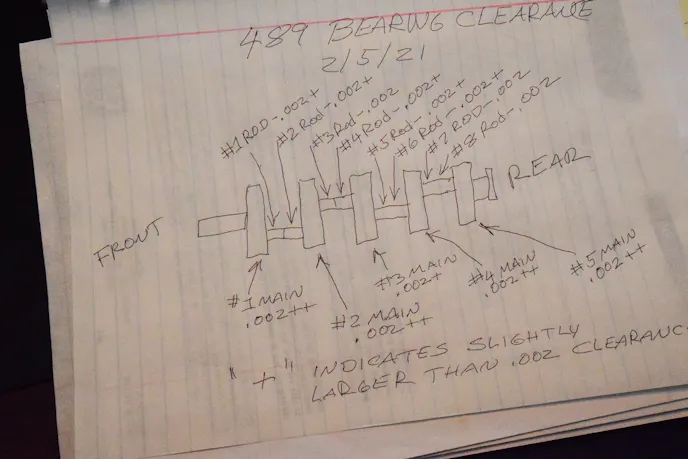 489 BEARING CLEARANCE
2/5/21
#1 ROD-.002+
#2 ROD-.002+
#3 Rod-.002
#4 ROD-.002+
#5 Rod-.002+
#6 Rod-.002+
#7 ROD-.002
#8 Rod-.002
FRONT
REAR
#1 MAIN
.002++
#2 MAIN
.002++
#3 MAIN
.002+
#4 MAIN
.002++
#5 MAIN
.002++
"+" INDICATES SLIGHTLY
LARGER THAN .002 CLEARANC